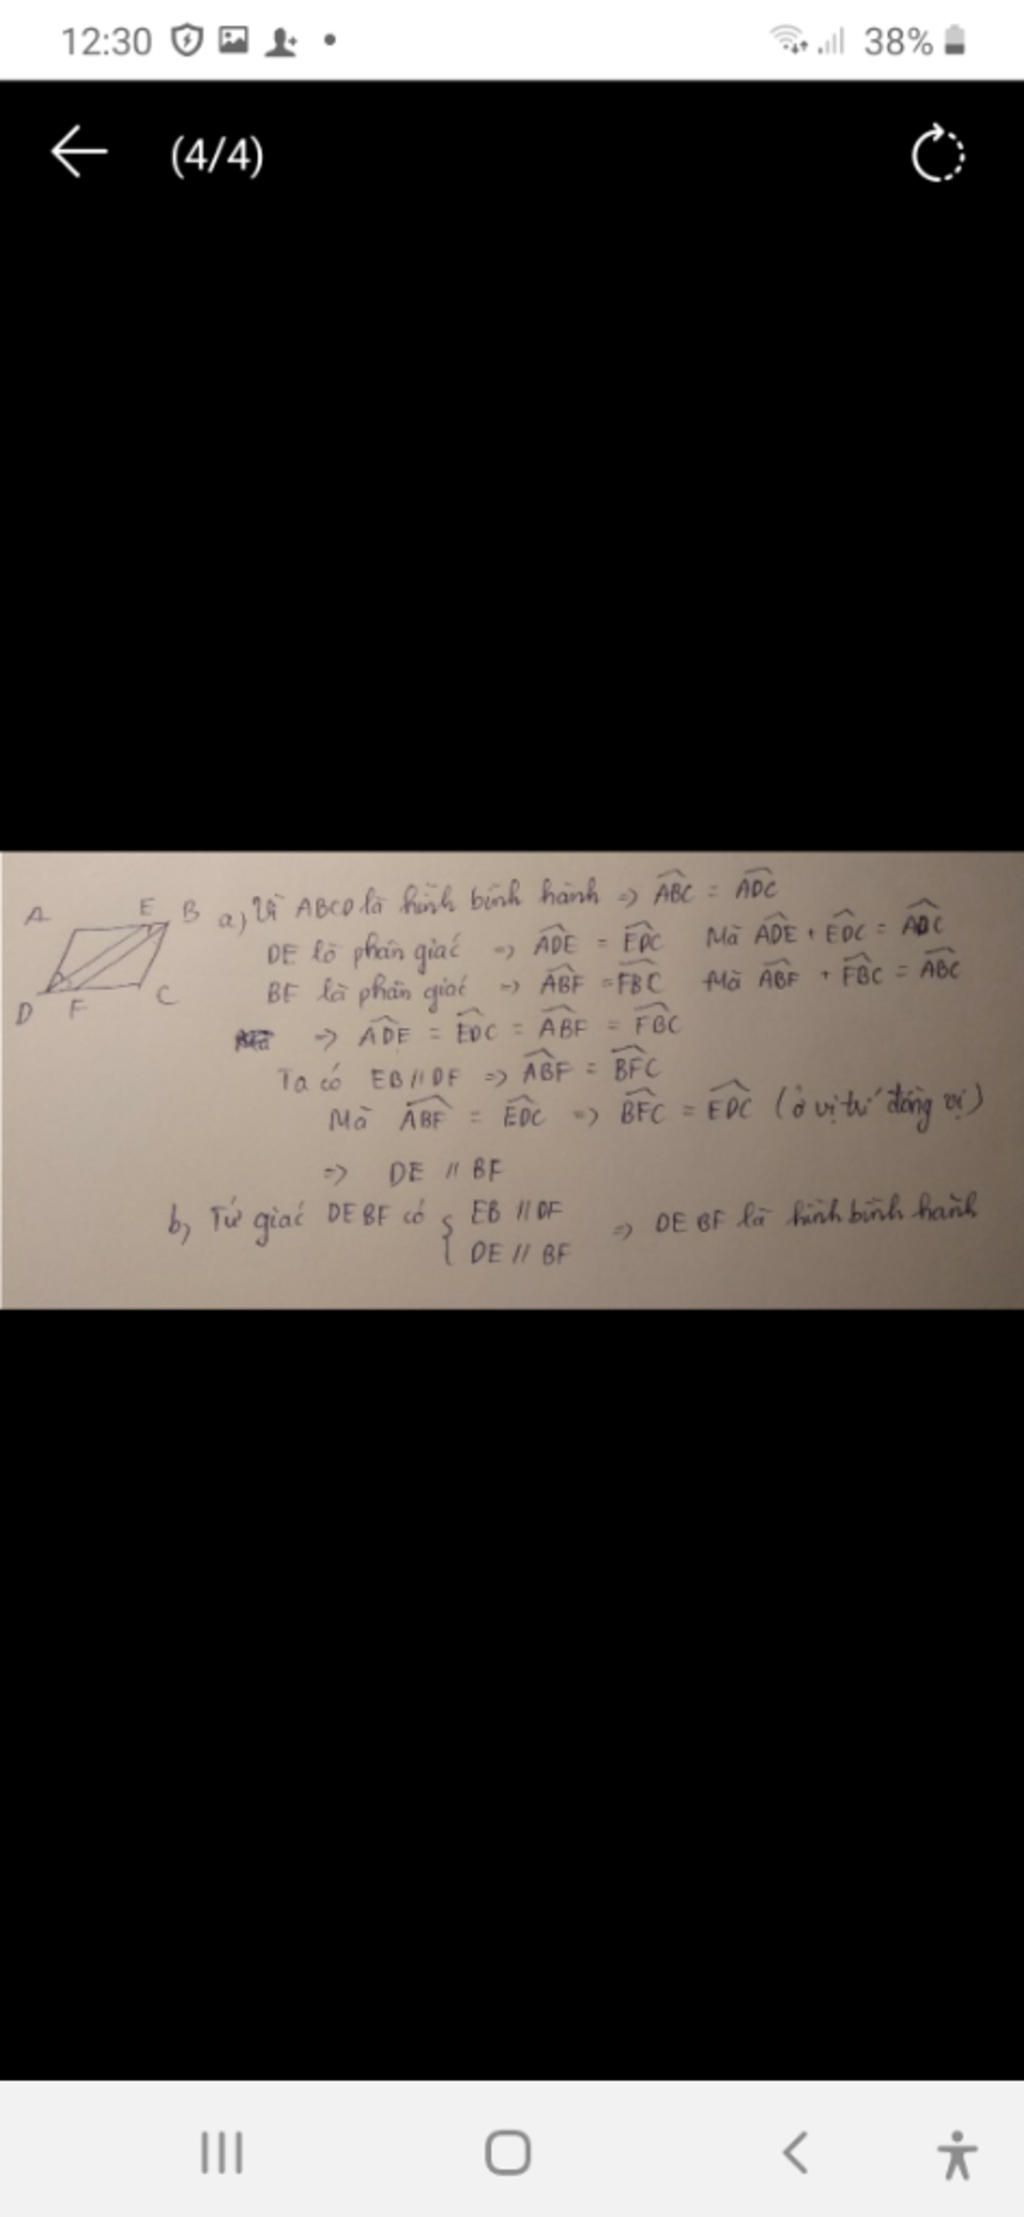 12:30
38%
(4/4)
A E B
D F C
a) Vì ABCD là hình bình hành => ABC = ADC
DE là phân giác => ADE = EDC Mà ADE + EDC = ADC
BF là phân giác => ABF = FBC Mà ABF + FBC = ABC
=> ADE = EDC = ABF = FBC
Ta có EB // DF => ABF = BFC
Mà ABF = EDC => BFC = EDC (ở vị trí đồng vị)
=> DE // BF
b, Tứ giác DEBF có { EB // DF
DE // BF => DEBF là hình bình hành